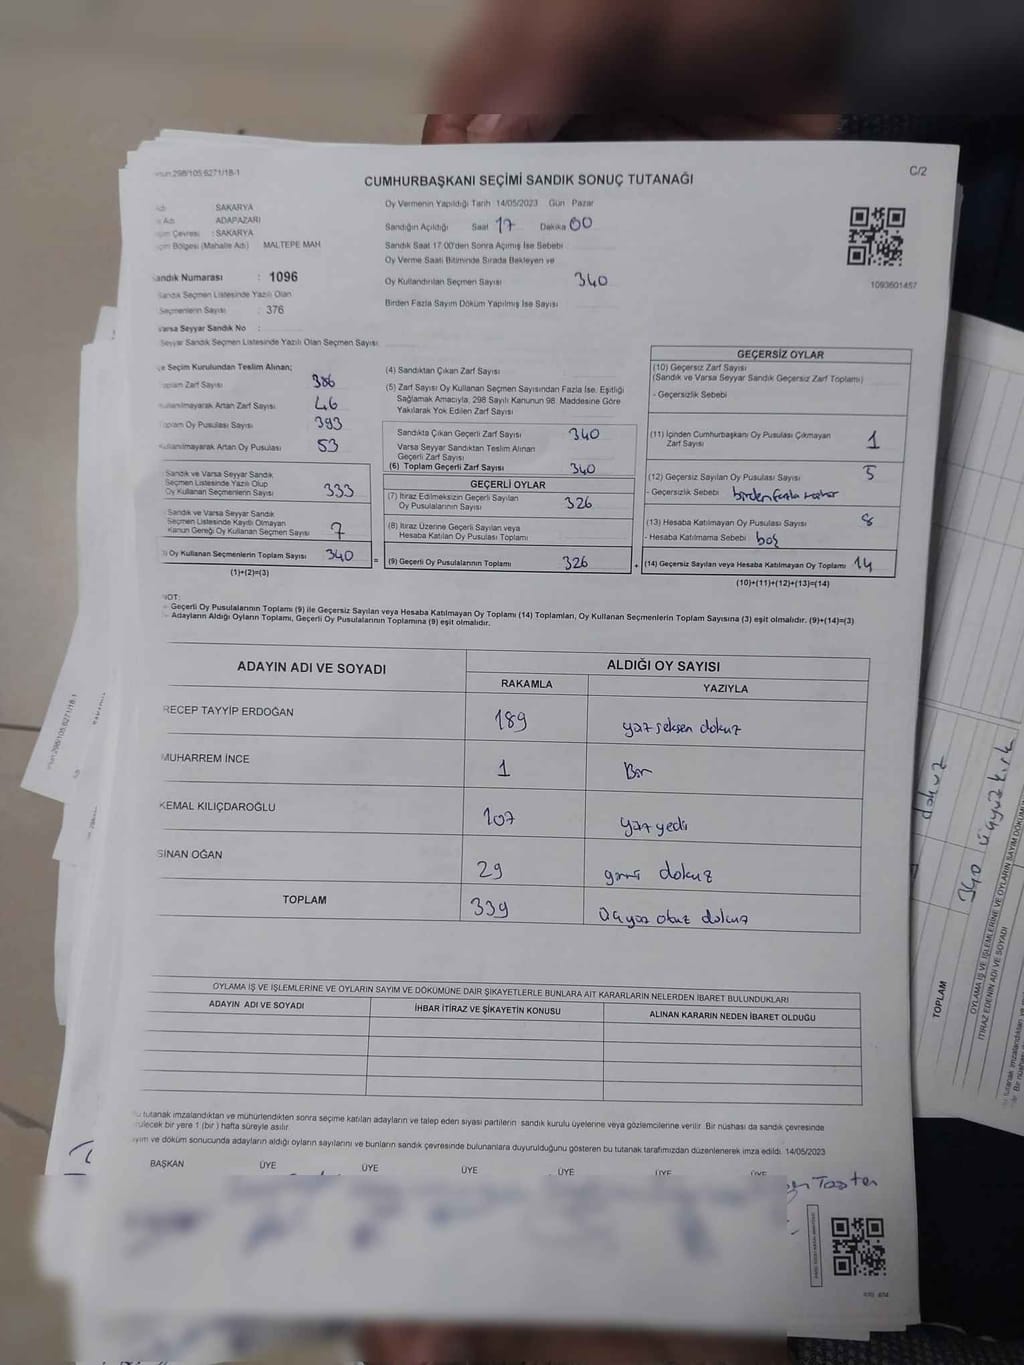 298/105;6271/18-1
C/2
CUMHURBAŞKANI SEÇİMİ SANDIK SONUÇ TUTANAĞI
Adı SAKARYA
Adı ADAPAZARI
Çevresi : SAKARYA
Bölgesi (Mahalle Adı) MALTEPE MAH
Sandık Numarası : 1096
Sandık Seçmen Listesinde Yazılı Olan
Seçmenlerin Sayısı : 376
Varsa Seyyar Sandık No :
Seyyar Sandık Seçmen Listesinde Yazılı Olan Seçmen Sayısı
Oy Vermenin Yapıldığı Tarih 14/05/2023 Gün Pazar
Sandığın Açıldığı Saat 17 Dakika 00
Sandık Saat 17:00'den Sonra Açılmış İse Sebebi
Oy Verme Saati Bitiminde Sırada Bekleyen ve
Oy Kullandırılan Seçmen Sayısı 340
Birden Fazla Sayım Döküm Yapılmış İse Sayısı
1093601457
Seçim Kurulundan Teslim Alınan;
Toplam Zarf Sayısı 386
Kullanılmayarak Artan Zarf Sayısı 46
Toplam Oy Pusulası Sayısı 393
Kullanılmayarak Artan Oy Pusulası 53
Sandık ve Varsa Seyyar Sandık
Seçmen Listesinde Yazılı Olup
Oy Kullanan Seçmenlerin Sayısı 333
Sandık ve Varsa Seyyar Sandık
Seçmen Listesinde Kayıtlı Olmayan
Kanun Gereği Oy Kullanan Seçmen Sayısı 7
Oy Kullanan Seçmenlerin Toplam Sayısı 340
(1)+(2)=(3)
(4) Sandıktan Çıkan Zarf Sayısı
(5) Zarf Sayısı Oy Kullanan Seçmen Sayısından Fazla İse, Eşitliği
Sağlamak Amacıyla, 298 Sayılı Kanunun 98. Maddesine Göre
Yakılarak Yok Edilen Zarf Sayısı
Sandıkta Çıkan Geçerli Zarf Sayısı 340
Varsa Seyyar Sandıktan Teslim Alınan
Geçerli Zarf Sayısı
(6) Toplam Geçerli Zarf Sayısı 340
GEÇERLİ OYLAR
(7) İtiraz Edilmeksizin Geçerli Sayılan
Oy Pusulalarının Sayısı 326
(8) İtiraz Üzerine Geçerli Sayılan veya
Hesaba Katılan Oy Pusulası Toplamı
= (9) Geçerli Oy Pusulalarının Toplamı 326 +
GEÇERSİZ OYLAR
(10) Geçersiz Zarf Sayısı
(Sandık ve Varsa Seyyar Sandık Geçersiz Zarf Toplamı)
- Geçersizlik Sebebi
(11) İçinden Cumhurbaşkanı Oy Pusulası Çıkmayan
Zarf Sayısı 1
(12) Geçersiz Sayılan Oy Pusulası Sayısı 5
- Geçersizlik Sebebi birden fazla mühür
(13) Hesaba Katılmayan Oy Pusulası Sayısı 8
- Hesaba Katılmama Sebebi boş
(14) Geçersiz Sayılan veya Hesaba Katılmayan Oy Toplamı 14
(10)+(11)+(12)+(13)=(14)
NOT:
- Geçerli Oy Pusulalarının Toplamı (9) ile Geçersiz Sayılan veya Hesaba Katılmayan Oy Toplamı (14) Toplamları, Oy Kullanan Seçmenlerin Toplam Sayısına (3) eşit olmalıdır. (9)+(14)=(3)
- Adayların Aldığı Oyların Toplamı, Geçerli Oy Pusulalarının Toplamına (9) eşit olmalıdır.
ADAYIN ADI VE SOYADI ALDIĞI OY SAYISI
RAKAMLA YAZIYLA
RECEP TAYYİP ERDOĞAN 189 yüz seksen dokuz
MUHARREM İNCE 1 Bir
KEMAL KILIÇDAROĞLU 107 yüz yedi
SİNAN OĞAN 29 yirmi dokuz
TOPLAM 339 üçyüz otuz dokuz
OYLAMA İŞ VE İŞLEMLERİNE VE OYLARIN SAYIM VE DÖKÜMÜNE DAİR ŞİKAYETLERLE BUNLARA AİT KARARLARIN NELERDEN İBARET BULUNDUKLARI
ADAYIN ADI VE SOYADI İHBAR İTİRAZ VE ŞİKAYETİN KONUSU ALINAN KARARIN NEDEN İBARET OLDUĞU
tutanak imzalandıktan ve mühürlendikten sonra seçime katılan adayların ve talep eden siyasi partilerin sandık kurulu üyelerine veya gözlemcilerine verilir. Bir nüshası da sandık çevresinde
bir yere 1 (bir ) hafta süreyle asılır.
ve döküm sonucunda adayların aldığı oyların sayılarını ve bunların sandık çevresinde bulunanlara duyurulduğunu gösteren bu tutanak tarafımızdan düzenlenerek imza edildi. 14/05/2023
BAŞKAN ÜYE ÜYE ÜYE ÜYE ÜYE ÜYE
298/105;6271/18-1
dokuz
340 üçyüzkırk
TOPLAM
OYLAMA İŞ VE İŞLEMLERİNE VE OYLARIN SAYIM VE DÖKÜM
İTİRAZ EDENİN ADI VE SOYADI